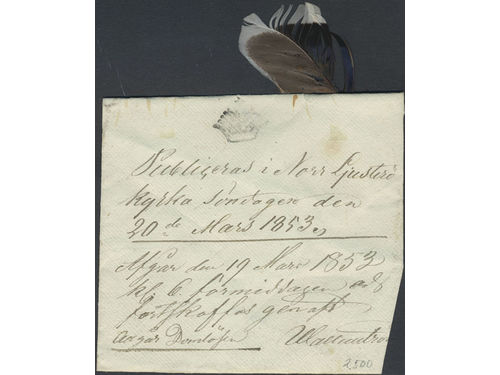 Publiceras i Norr Ljusterö
kyrka söndagen den
20de Mars 1853,
Afgår den 19 Mars 1853
kl. 6. förmiddagen och
fortskaffas genast
2500